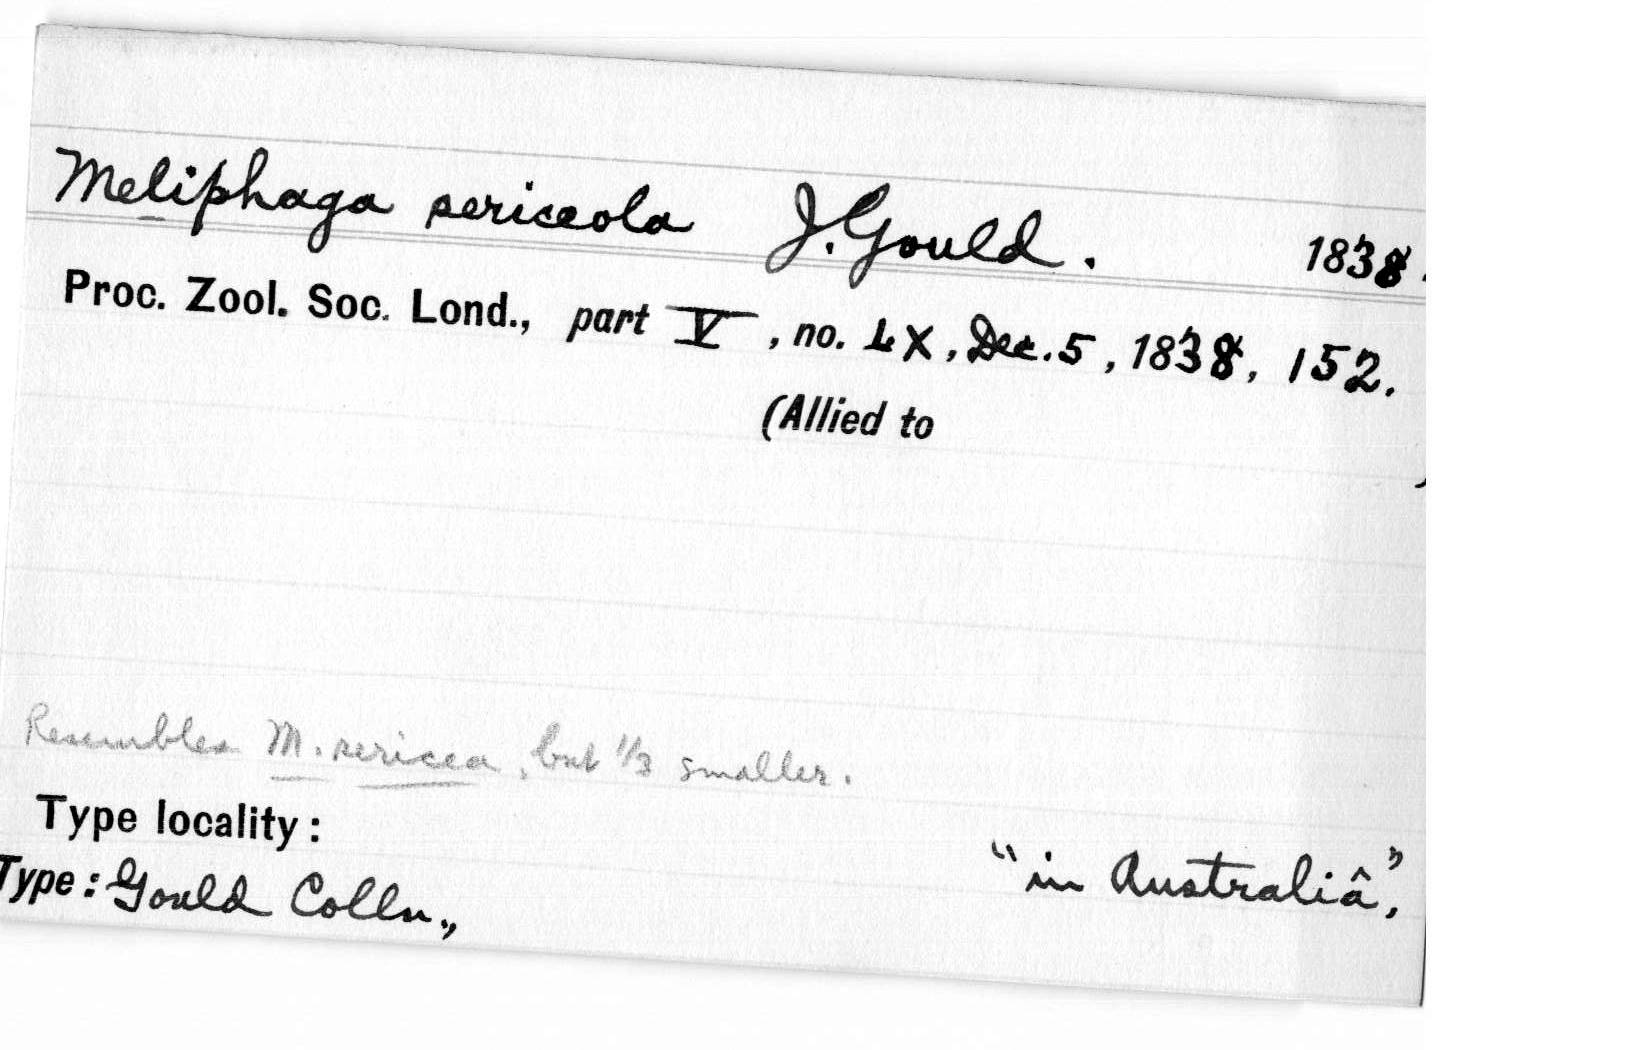 Meliphaga sericeola J. Gould. 1838.
Proc. Zool. Soc. Lond., part V, no. LX, Dec. 5, 1838, 152.
(Allied to
)
Resembles M. sericea, but 1/3 smaller.
Type locality:
"in Australiâ",
Type: Gould Colln.,